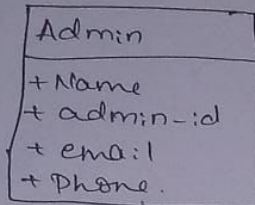 Admin
+ Name
+ admin-id
+ email
+ Phone.